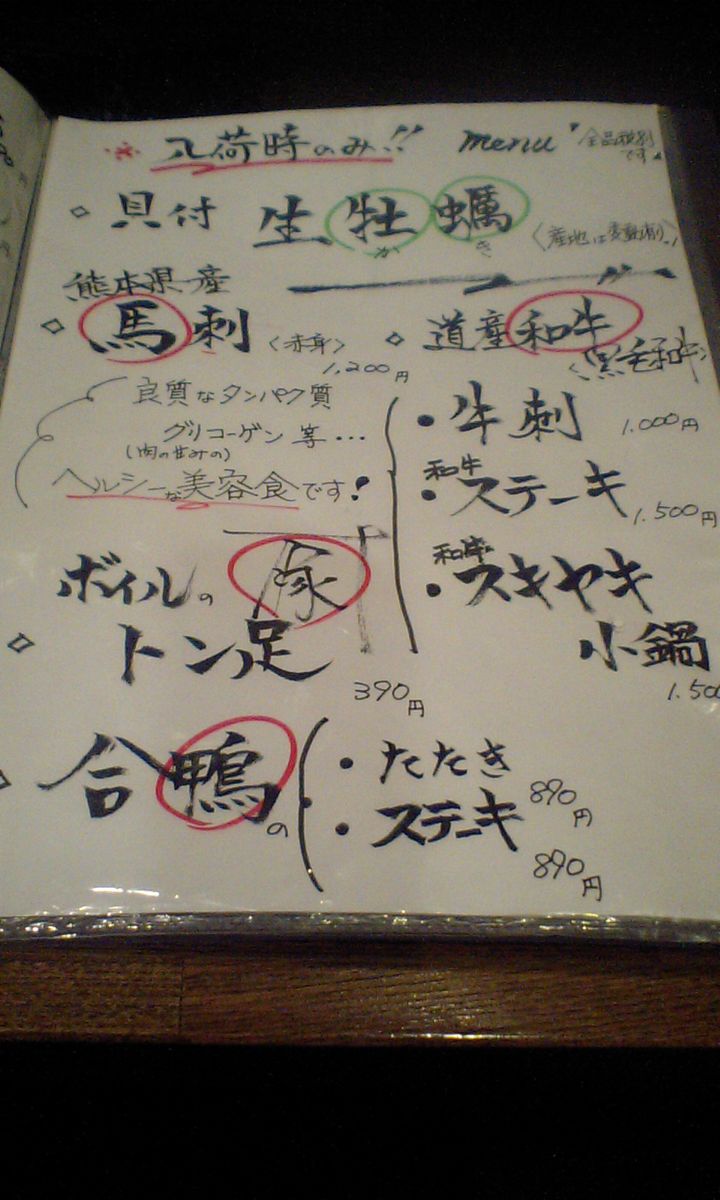 ※ 入荷時のみ!! menu
全品税別です
◇ 貝付 生牡蠣
かき
〈産地は変動有り〉
熊本県産
◇ 馬刺 〈赤身〉
1,200円
良質なタンパク質
グリコーゲン 等…
(肉の甘みの)
ヘルシーな美容食です!
◇ 道産和牛
〈黒毛和牛〉
・牛刺 1.000円
・和牛ステーキ
1.500円
・和牛スキヤキ
小鍋
1.500
◇ ボイルの豚
トン足
390円
◇ 合鴨の
・たたき
890円
・ステーキ
890円